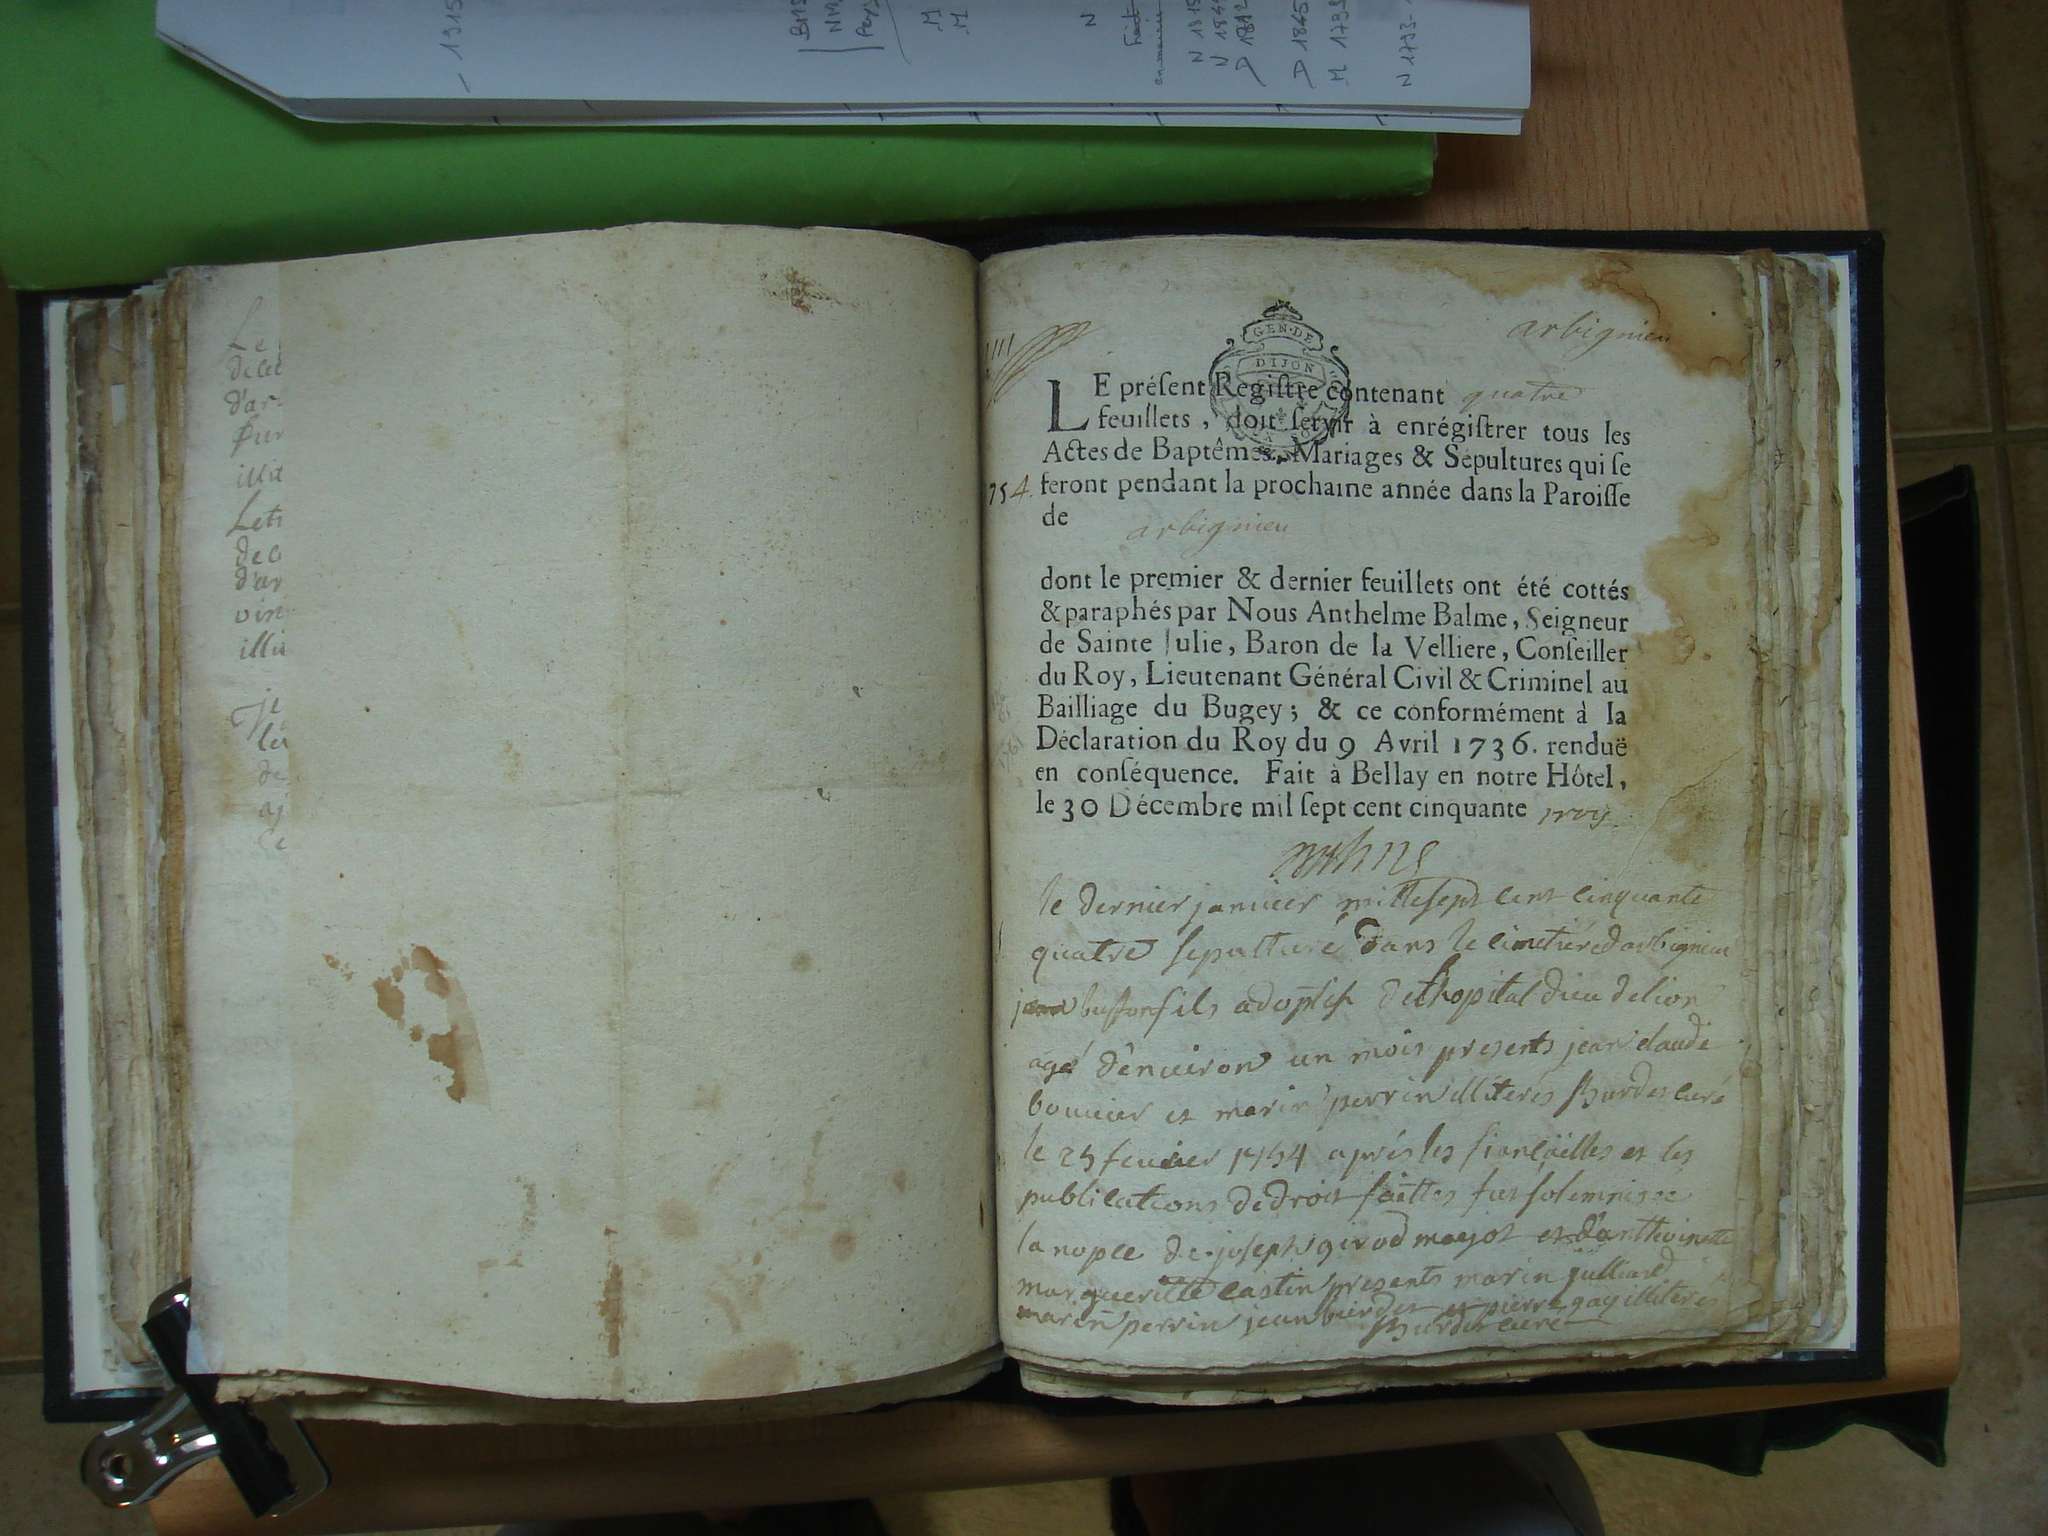 1915
N
M
M
N 1815
D 1812
D 1845
M 1793
N 1793-
Le
d'ar-
illit
Lets
d'ar
illit
je
de
arbignieu
GEN·DE
DIJON
LE préſent Regiſtre contenant quatre
feuillets, doit ſervir à enrégiſtrer tous les
Actes de Baptêmes, Mariages & Sépultures qui ſe
754. feront pendant la prochaine année dans la Paroiſſe
de arbignieu
dont le premier & dernier feuillets ont été cottés
& paraphés par Nous Anthelme Balme, Seigneur
de Sainte Julie, Baron de la Velliere, Conſeiller
du Roy, Lieutenant Général Civil & Criminel au
Bailliage du Bugey; & ce conformément à la
Déclaration du Roy du 9 Avril 1736. renduë
en conſéquence. Fait à Bellay en notre Hôtel,
le 30 Décembre mil ſept cent cinquante troys.
le dernier janvier mille sept cent cinquante
quatre sepulturé dans le cimetiére d'arbignieu
fils de l'hopital dieu de lion
agé d'environ un mois presents jean claude
bouvier et marin perrin illiterés hurdes curé
le 25 fevrier 1754 aprés les fiançailles et les
publications de droit faittes fut solemnisee
la nopce de joseph girod mayot et d'anthoinette
margueritte castin presents marin julliard
marin perrin jean et pierre gay illiterés
hurdes curé